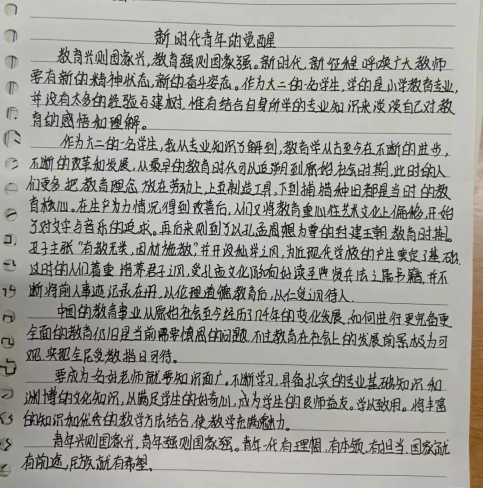 新时代青年的觉醒
教育兴则国家兴，教育强则国家强。新时代，新征程呼唤广大教师
要有新的精神状态，新的奋斗姿态。作为大二的一名学生，学的是小学教育专业，
并没有太多的经验与建树，惟有结合自身所学的专业知识来谈谈自己对教
育的感悟和理解。
作为大二的一名学生，我从专业知识了解到，教育学从古至今在不断的进步，
不断的改革和发展，从最早的教育时代可以追溯到原始社会时期，此时的人
们更多把教育理念放在劳动上，上至制造工具，下到捕猎种田都是当时的教
育核心。在生产力情况得到改善后，人们又将教育重心往艺术文化上偏移，开始
了对文学与音乐的追求。再后来则到了以孔孟思想为尊的封建王朝教育时期。
孔子主张“有教无类，因材施教”，并开设私学之风，为近现代学校的产生奠定了基础，
这时的人们着重培养君子之风，受孔孟文化的影响饱读圣贤兵法之类书籍，并不
断将前人事迹记录在册，从伦理道德教育后人，从仁爱之风待人。
中国的教育事业从原始社会至今经历了几千年的变化发展，如何进行更完备更
全面的教育仍旧是当前需要慎思的问题，不过教育在社会上的发展前景极为可
观，实现全民受教指日可待。
要成为一名好老师就要知识面广。不断学习，具备扎实的专业基础知识和
渊博的文化知识，以满足学生的好奇心，成为学生的良师益友。学以致用。将丰富
的知识加优会的教学方法结合，使教学充满魅力。
青年兴则国家兴，青年强则国家强。青年一代有理想，有本领，有担当，国家就
有前途，民族就有希望。